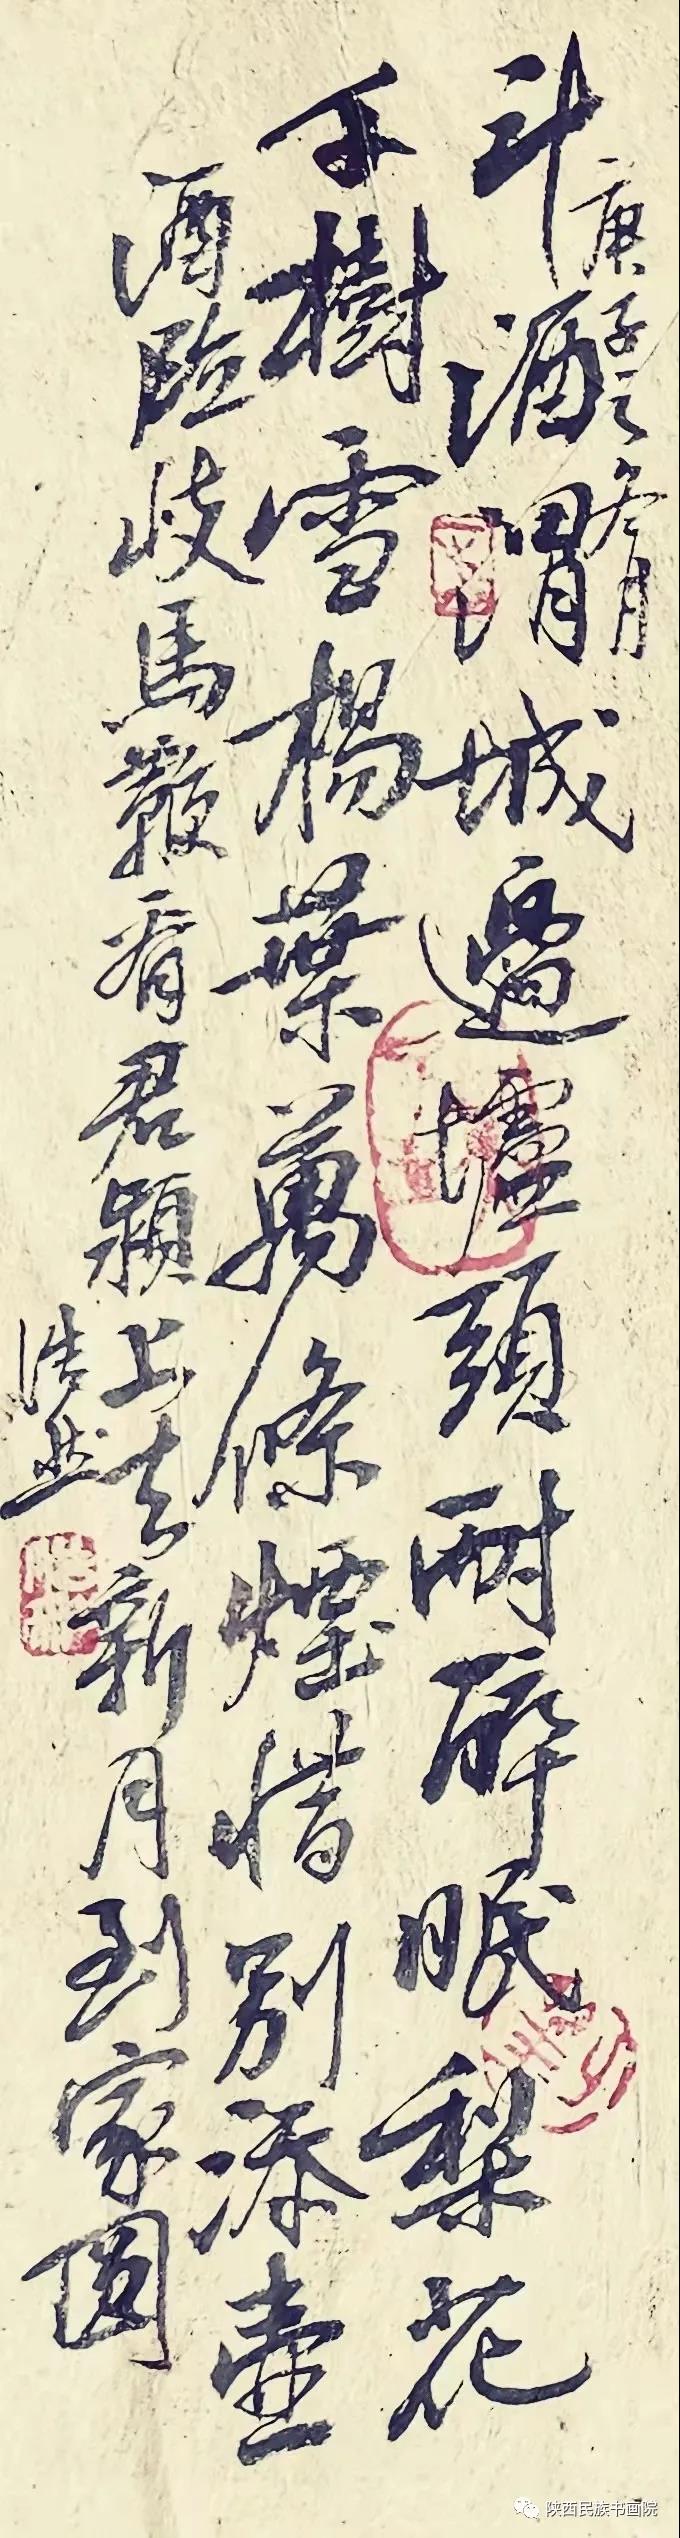 庚子之冬月
斗酒渭城邊壚頭耐醉眠梨花
千樹雪楊葉萬條煙惜別添壺
酒臨歧馬鞭看君潁上去新月到家圓
浩然
陕西民族书画院